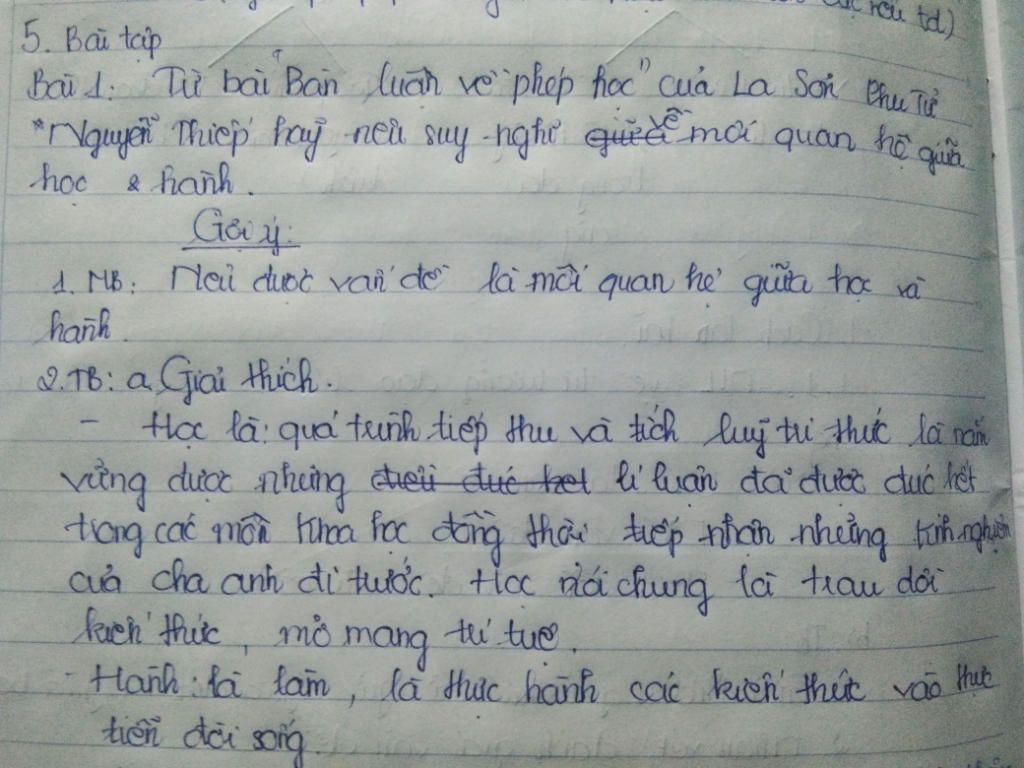 cực nếu td)
5. Bài tập
Bài 1: Từ bài "Bàn luận về phép học" của La Sơn Phu Tử
*Nguyễn Thiếp hãy nêu suy nghĩ giữa về mối quan hệ giữa
học & hành.
Gợi ý:
1. MB: Nêu được vấn đề là mối quan hệ giữa học và
hành.
2. TB: a. Giải thích.
- Học là: quá trình tiếp thu và tích luỹ tri thức là nắm
vững được những lí luận đã được đúc kết
trong các môn khoa học đồng thời tiếp nhận những kinh nghiệm
của cha anh đi trước. Học nói chung là trau dồi
kiến thức, mở mang trí tuệ.
- Hành: là làm, là thực hành các kiến thức vào thực
tiễn đời sống.